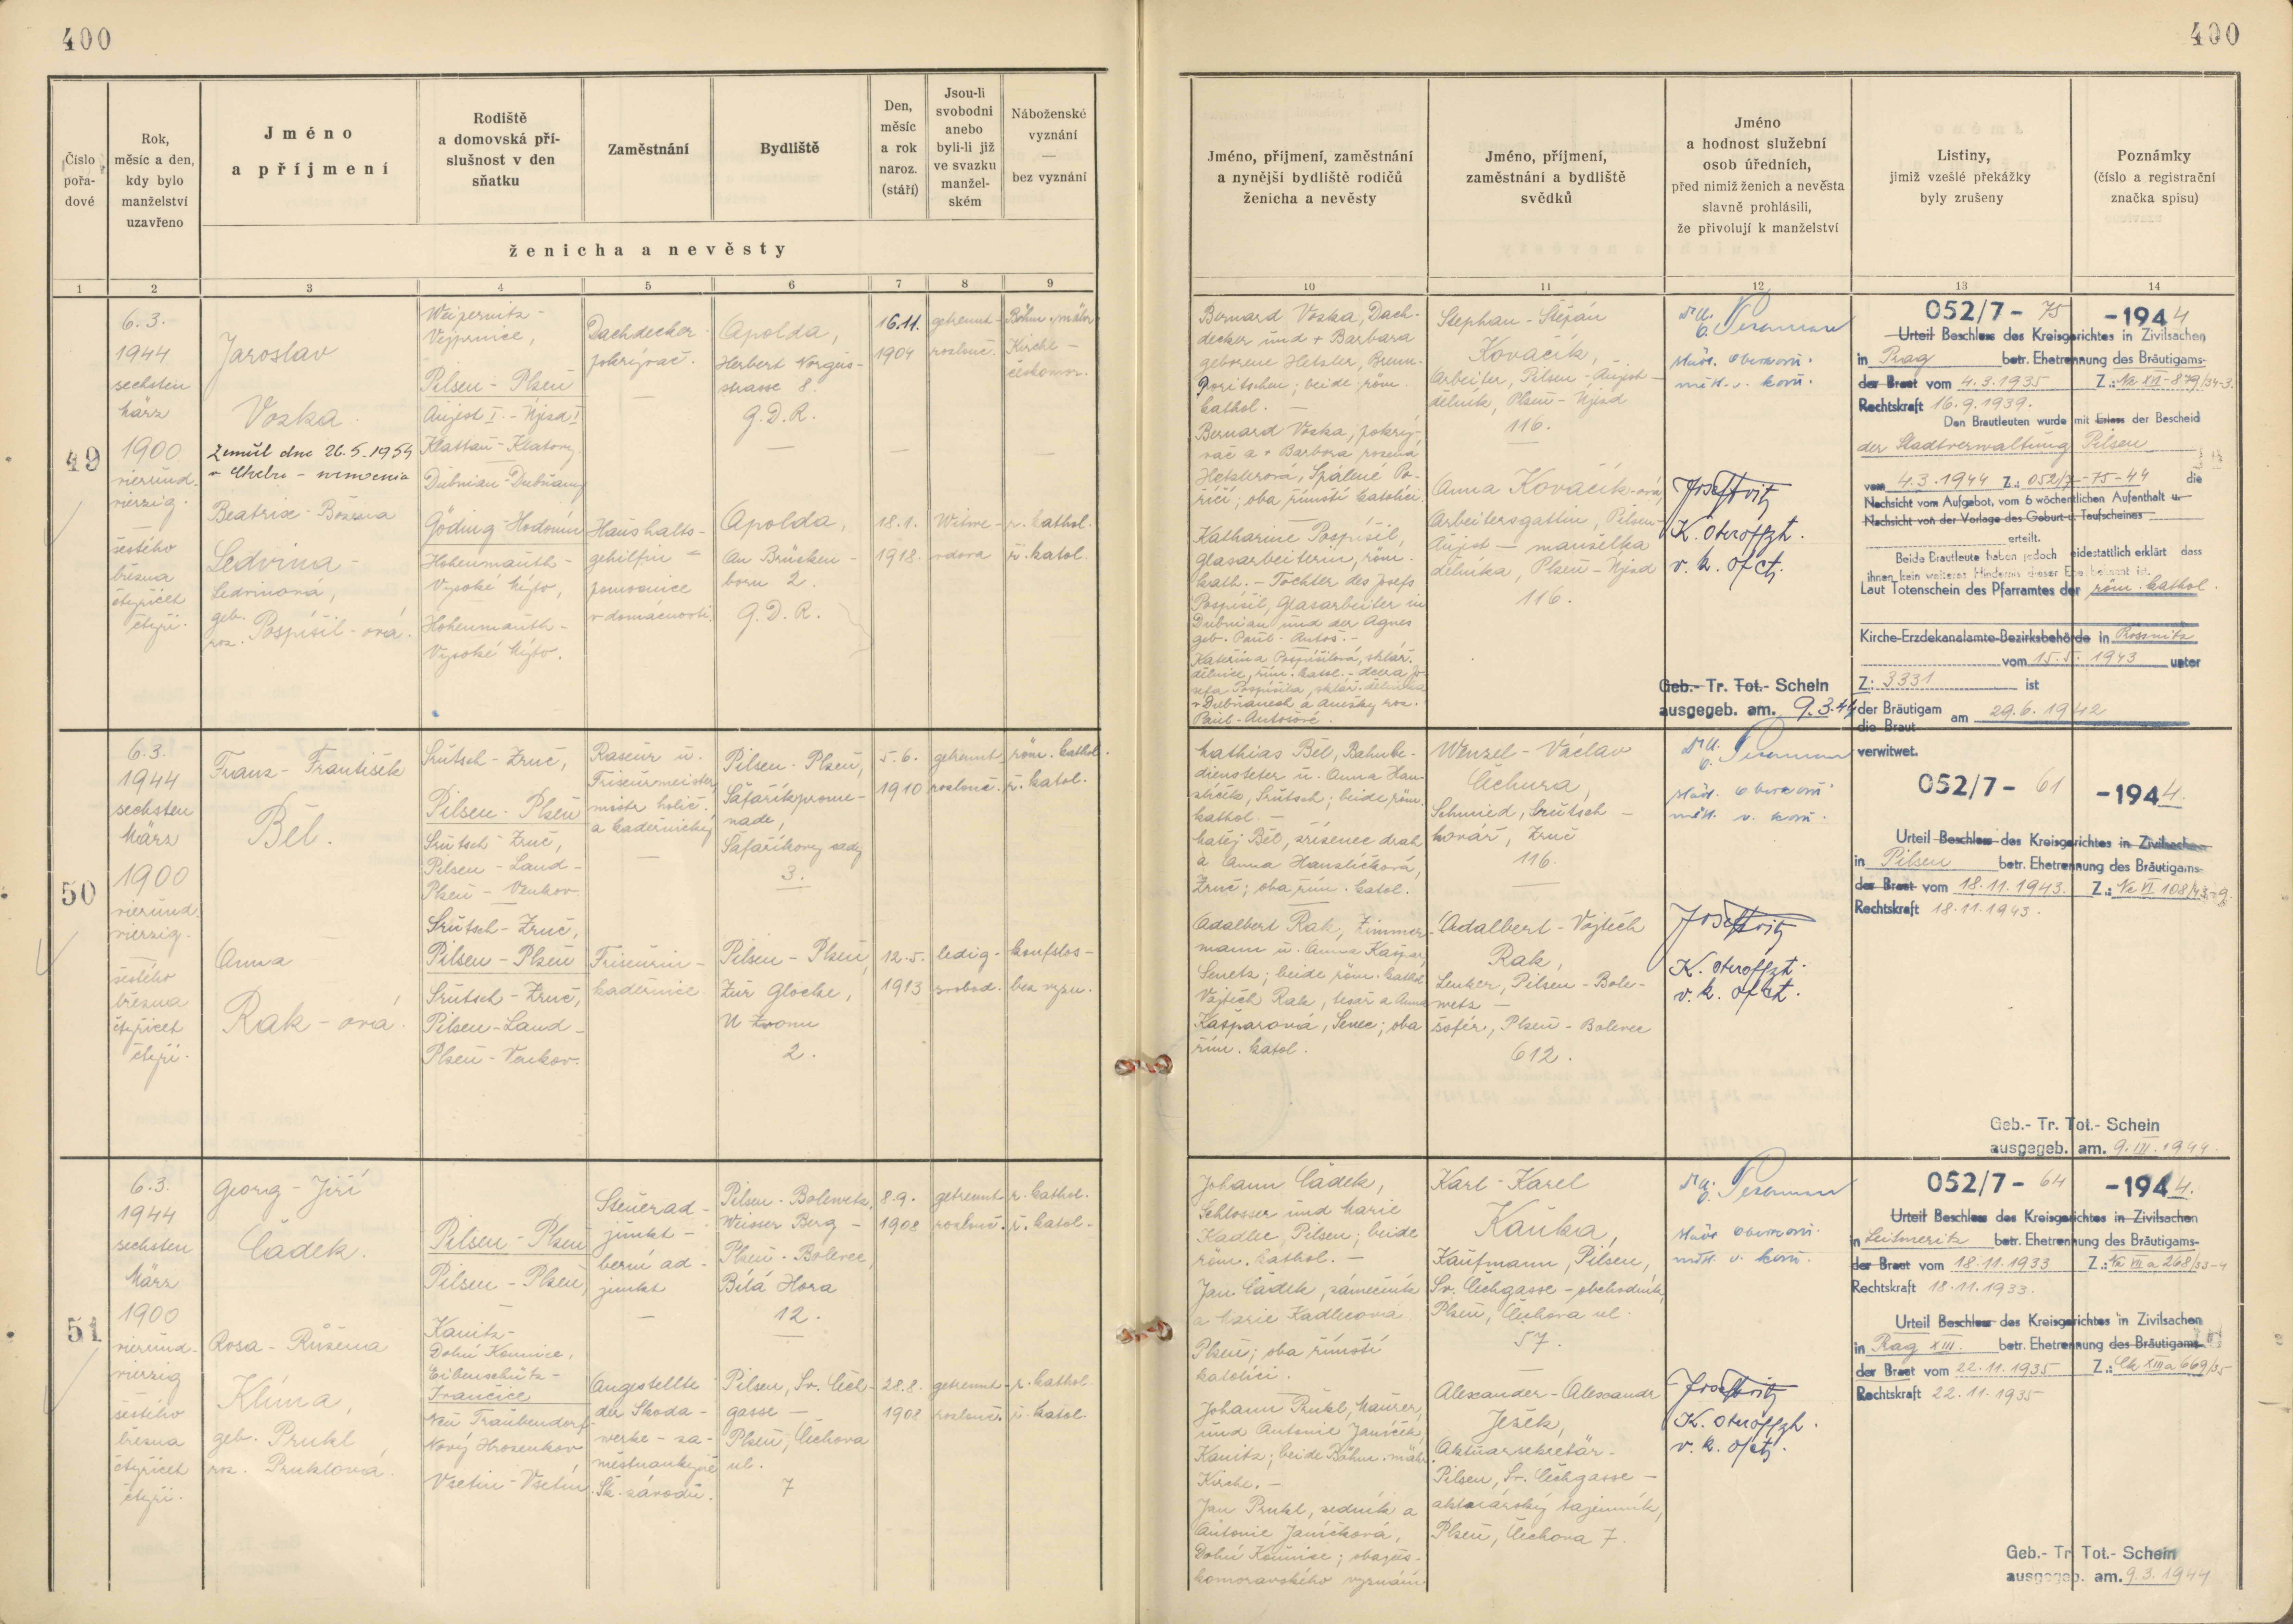 400
400
Číslo
pořa-
dové
Rok,
měsíc a den,
kdy bylo
manželství
uzavřeno
Jméno
a příjmení
Rodiště
a domovská pří-
slušnost v den
sňatku
Zaměstnání
Bydliště
Den,
měsíc
a rok
naroz.
(stáří)
Jsou-li
svobodni
anebo
byli-li již
ve svazku
manžel-
ském
Náboženské
vyznání
—
bez vyznání
ženicha a nevěsty
Jméno, příjmení, zaměstnání
a nynější bydliště rodičů
ženicha a nevěsty
Jméno, příjmení,
zaměstnání a bydliště
svědků
Jméno
a hodnost služební
osob úředních,
před nimiž ženich a nevěsta
slavně prohlásili,
že přivolují k manželství
Listiny,
jimiž vzešlé překážky
byly zrušeny
Poznámky
(číslo a registrační
značka spisu)
1 2 3 4 5 6 7 8 9 10 11 12 13 14
49
6.3.
1944
sechsten
März
1900
vierund-
vierzig.
—
šestého
března
čtyřicet
čtyři.
Jaroslav
Voska
Zemřel dne 26.5.1954
v Chebu - nemocnice
Beatrix - Božena
Ledvina -
Ledvinová,
geb.
roz. Pospíšil-ová.
Weipernitz -
Vejprnice,
Pilsen - Plzeň
Aujezd I. - Újezd I
Klattau - Klatovy
Dubnian - Dubňany
Göding - Hodonín
Hohenmauth -
Vysoké Mýto,
Hohenmauth -
Vysoké Mýto.
Dachdecker -
pokrývač.
—
Haushalts-
gehilfin -
pomocnice
v domácnosti.
Apolda,
Herbert Norgus-
strasse 8.
G.D.R.
—
Apolda,
An Brücken -
born 2.
G.D.R.
16.11.
1904
—
18.1.
1918.
getrennt -
rozlouč.
—
Witwe -
vdova
Böhm.-mähr.
Kirche -
českomor.
—
r. kathol.
ř. katol.
Bernard Voska, Dach-
decker und + Barbara
geborene Hetzler, Brenn-
Poritschen; beide röm.
kathol. -
Bernard Voska, pokrý-
vač a + Barbora rozená
Hetzlerová, Spálené Po-
říčí; oba římští katolíci.
Katharine Pospíšil,
Glasarbeiterin, röm.
kath. - Tochter des Josefs
Pospíšil, Glasarbeiter in
Dubnian und der Agnes
geb. Paul-Antoš. -
Kateřina Pospíšilová, sklář.
dělnice, řím. katol. - dcera Jo-
sefa Pospíšila, sklář. dělníka
v Dubňanech a Anežky roz.
Paul-Antošové.
Stephan - Štěpán
Kovačík,
Arbeiter, Pilsen - Aujezd -
dělník, Plzeň - Újezd
116.
—
Anna Kovačík-ová,
Arbeitersgattin, Pilsen -
Aujezd — manželka
dělníka, Plzeň - Újezd
116.
Josef Fritz
K. Oteroffzt.
v. k. ofct.
Geb.- Tr. Tot.- Schein
ausgegeb. am. 9.3.44
052/7- 75 -1944
Urteil Beschluss des Kreisgerichtes in Zivilsachen
in Prag betr. Ehetrennung des Bräutigams-
der Braut vom 4.3.1935 Z.: Nc XII-879/34-3.
Rechtskraft 16.9.1939.
Den Brautleuten wurde mit Erlass der Bescheid
der Stadtverwaltung Pilsen
vom 4.3.1944 Z.: 052/7-75-44 die
Nachsicht vom Aufgebot, vom 6 wöchentlichen Aufenthalt u-
Nachsicht von der Vorlage des Geburt-u. Taufscheines
erteilt.
Beide Brautleute haben jedoch eidestattlich erklärt dass
ihnen kein weiteres Hindernis dieser Ehe bekannt ist.
Laut Totenschein des Pfarramtes der röm. kathol.
Kirche-Erzdekanalamte-Bezirksbehörde in Rossnitz
vom 15.5.1943 unter
Z: 3331 ist
der Bräutigam
die Braut am 29.6.1942
verwitwet.
50
6.3.
1944
sechsten
März
1900
vierund-
vierzig.
—
šestého
března
čtyřicet
čtyři.
Franz - František
Běl.
Anna
Rak - ová.
Srutsch - Zruč,
Pilsen - Plzeň
Srutsch - Zruč,
Pilsen - Land -
Plzeň - Venkov.
Srutsch - Zruč,
Pilsen - Plzeň
Srutsch - Zruč,
Pilsen - Land -
Plzeň - Venkov.
Raseur u.
Friseurmeister,
mistr holič.
a kadeřnický
—
Friseurin -
kadeřnice
Pilsen - Plzeň,
Šafaříkprome-
nade,
Šafaříkovy sady
3.
Pilsen - Plzeň,
Zur Glocke,
U Zvonu
2.
5.6.
1910
12.5.
1913
getrennt
rozlouč.
ledig -
svobod.
röm. kathol.
ř. katol.
konfslos -
bez vyzn.
Mathias Běl, Bahnbe-
diensteter u. Anna Han-
zlíček, Srutsch; beide röm.
kathol. -
Matěj Běl, zřízenec drah
a Anna Hanzlíčková,
Zruč; oba řím. katol.
Adalbert Rak, Zimmer-
mann u. Anna Kašpar,
Senetz; beide röm. kathol.
Vojtěch Rak, tesař a Anna
Kašparová, Senec; oba
řím. katol.
Wenzel - Václav
Čechura,
Schmied, Srutsch -
kovář, Zruč
116.
—
Adalbert - Vojtěch
Rak,
Lenker, Pilsen - Bole-
wetz -
šofér, Plzeň - Bolevec
612.
Josef Fritz
K. Oteroffzt.
v. k. ofct.
052/7- 61 -1944.
Urteil Beschluss des Kreisgerichtes in Zivilsachen
in Pilsen betr. Ehetrennung des Bräutigams-
der Braut vom 18.11.1943. Z.: Nc VI 108/43-9.
Rechtskraft 18.11.1943.
Geb.- Tr. Tot.- Schein
ausgegeb. am. 9.III.1944.
51
6.3.
1944
sechsten
März
1900
vierund-
vierzig
šestého
března
čtyřicet
čtyři.
Georg - Jiří
Čadek.
Rosa - Růžena
Klíma,
geb. Prukl,
roz. Pruklová.
Pilsen - Plzeň
Pilsen - Plzeň,
Kanitz -
Dolní Kounice,
Eibenschütz -
Ivančice
Neu Traubendorf
Nový Hrosenkov
Vsetin - Vsetín
Steuerad-
junkt -
berní ad-
junkt
—
Angestellte
der Skoda-
werke - za-
městnankyně
Šk. závodů.
Pilsen - Bolewetz,
Weisser Berg -
Plzeň - Bolevec,
Bílá Hora
12.
—
Pilsen, Sv. Čech-
gasse —
Plzeň, Čechova
ul.
7
8.9.
1908
28.8.
1908
getrennt
rozlouč.
getrennt
rozlouč.
r. kathol.
ř. katol.
r. kathol.
ř. katol.
Johann Čadek,
Schlosser und Marie
Kadlec, Pilsen; beide
röm. kathol. -
Jan Čadek, zámečník
a Marie Kadlecová
Plzeň; oba římští
katolíci.
Johann Prukl, Maurer,
und Antonie Janíček,
Kanitz; beide Böhm. mähr.
Kirche. -
Jan Prukl, zedník a
Antonie Janíčková,
Dolní Kounice;
komoravského vyznání
Karl - Karel
Kaůka,
Kaufmann, Pilsen,
Sv. Čechgasse - obchodník,
Plzeň, Čechova ul.
57.
—
Alexander - Alexandr
Ježek,
Aktuarsekretär -
Pilsen, Sv. Čechgasse -
aktuárský tajemník,
Plzeň, Čechova 7.
Josef Fritz
K. Oteroffzt.
v. k. ofct.
052/7- 64 -1944.
Urteil Beschluss des Kreisgerichtes in Zivilsachen
in Leitmeritz betr. Ehetrennung des Bräutigams-
der Braut vom 18.11.1933 Z.: Nc VII a 268/33-4
Rechtskraft 18.11.1933.
Urteil Beschluss des Kreisgerichtes in Zivilsachen
in Prag XIII. betr. Ehetrennung des Bräutigams-
der Braut vom 22.11.1935 Z.: Ck XIII a 669/35
Rechtskraft 22.11.1935
Geb.- Tr. Tot.- Schein
ausgegeb. am. 9.3.1944